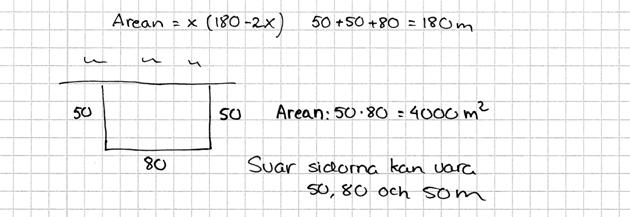 Arean = x (180-2x) 50+50+80 = 180m
50 50 Arean: 50·80 = 4000 m²
80 Svar sidorna kan vara
50, 80 och 50m